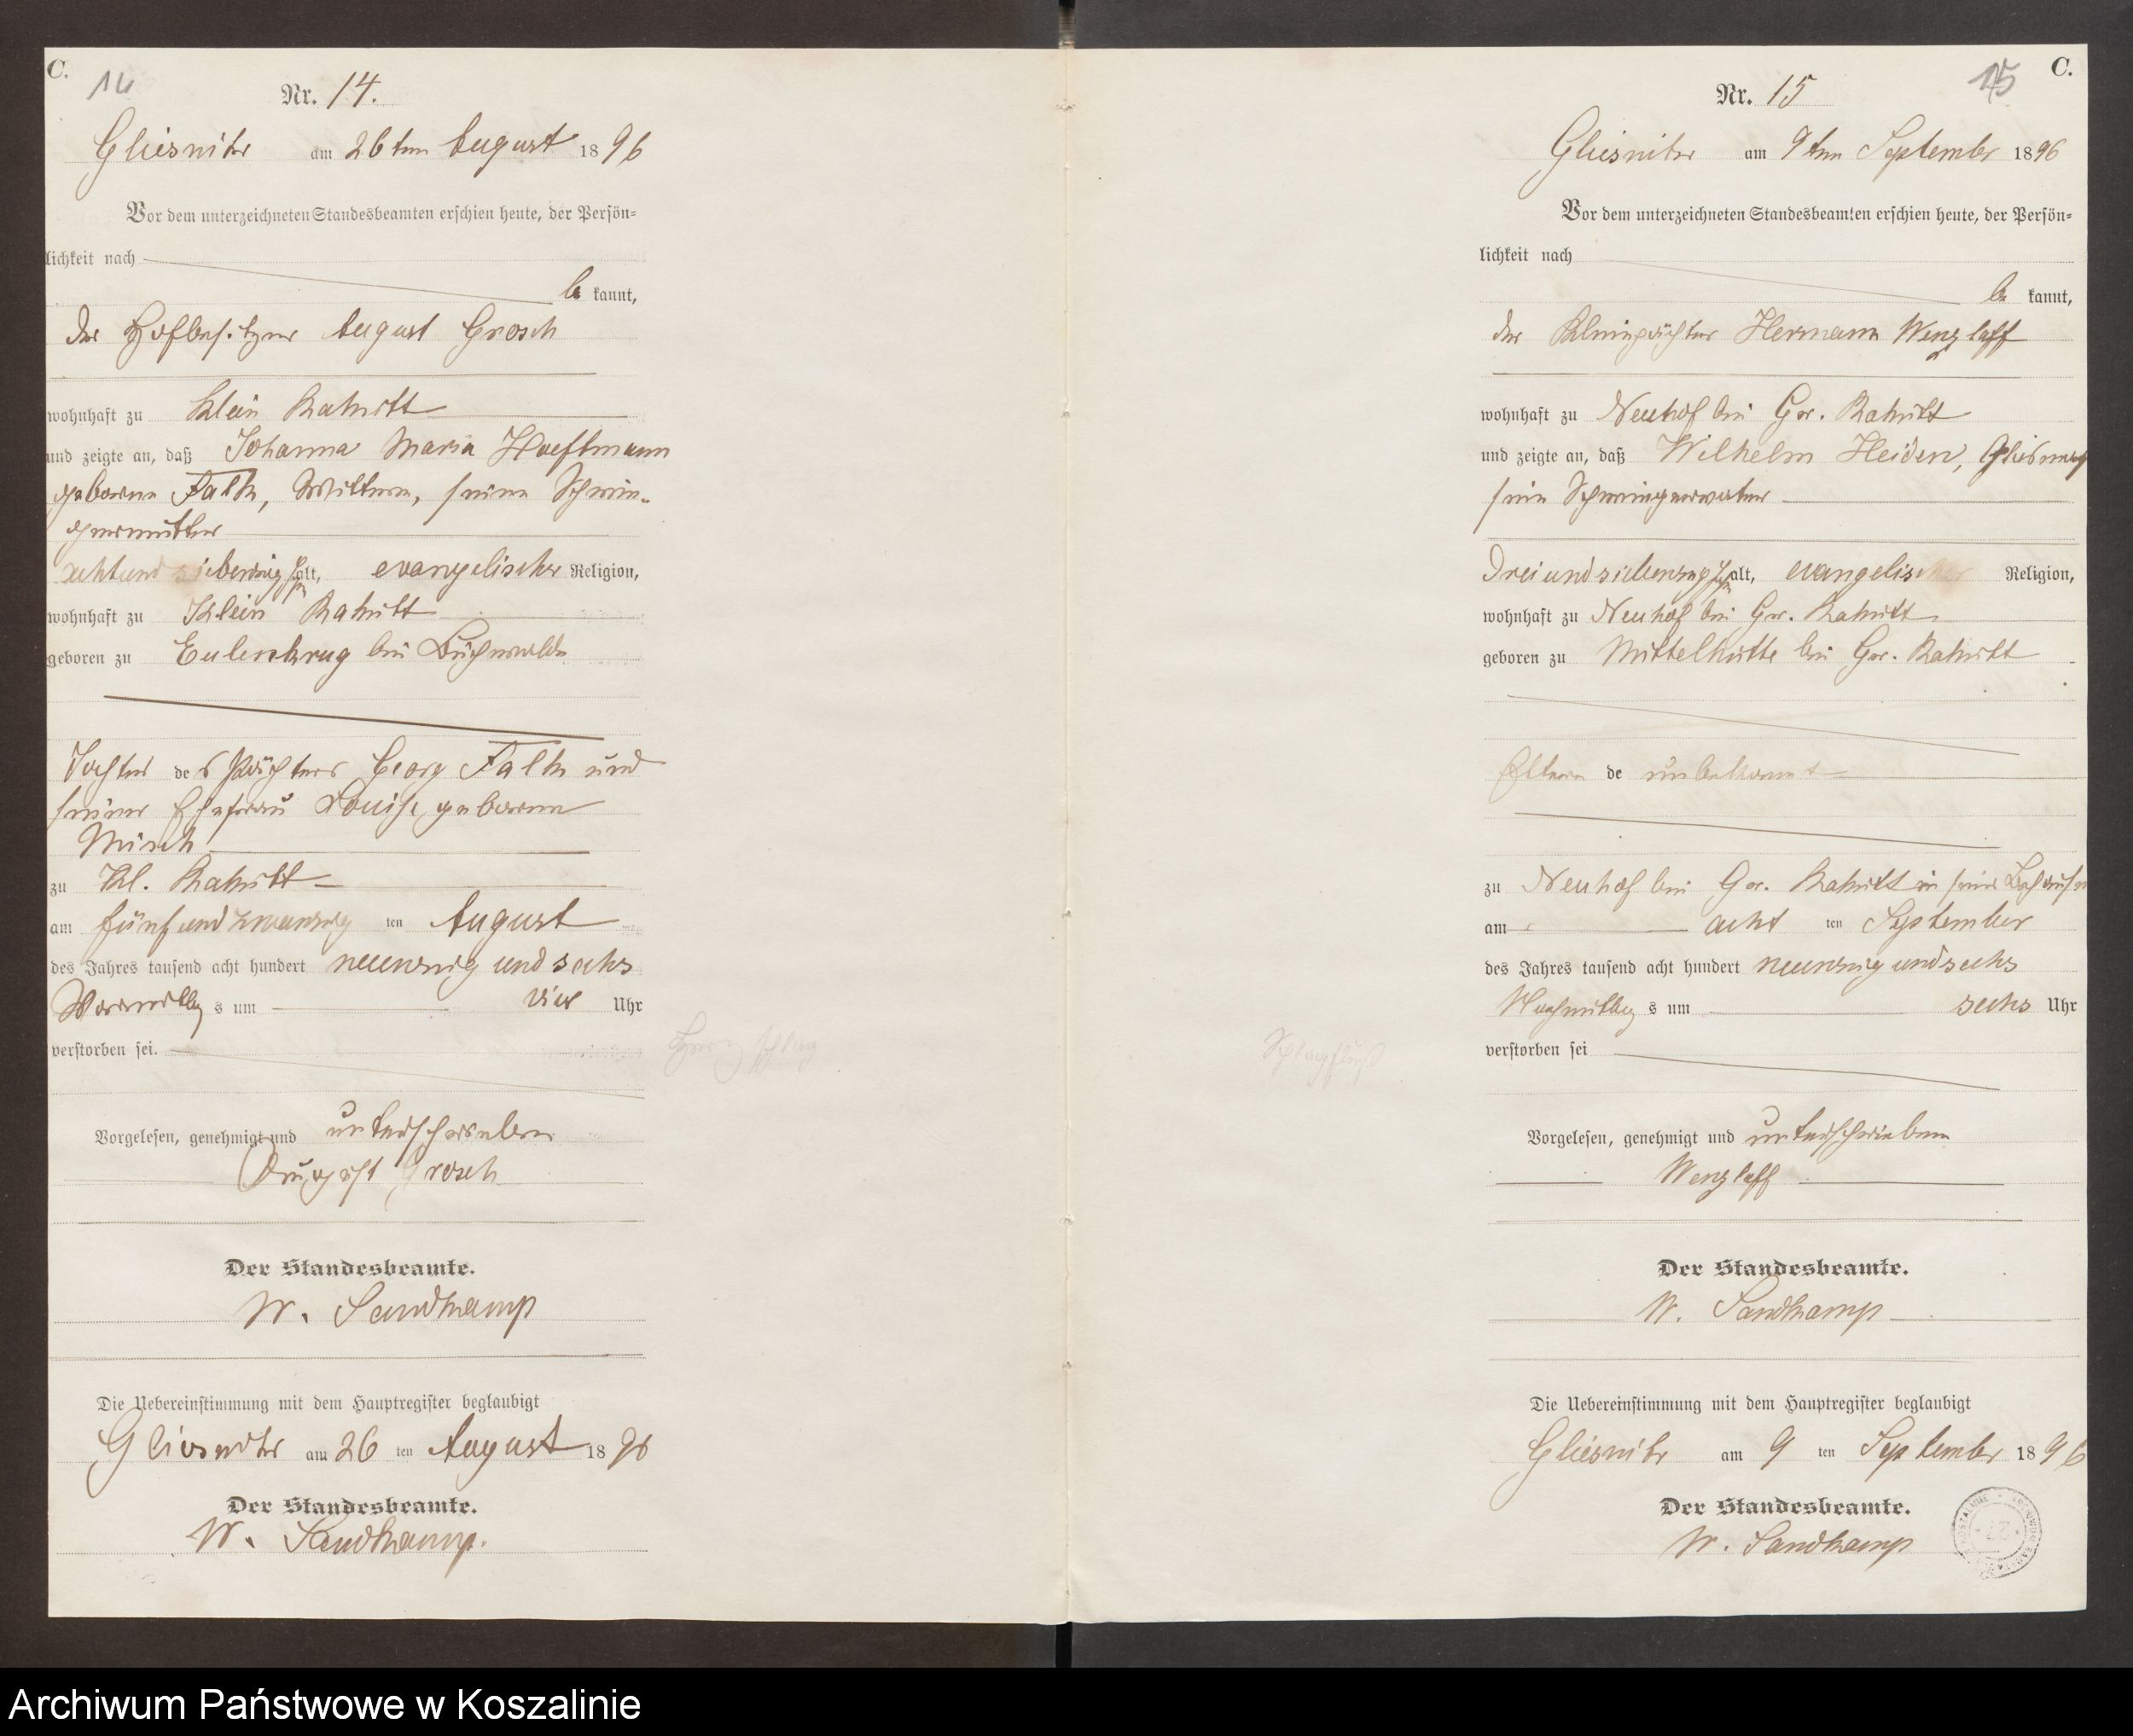 C.
14
Nr. 14.
Gliesnitz am 26ten August 1896
Vor dem unterzeichneten Standesbeamten erschien heute, der Persön=
lichkeit nach
be kannt,
der Hofbesitzer August Grosch
wohnhaft zu Klein Rakitt
und zeigte an, daß Johanna Maria Hoeftmann
geborene Falk, Wittwe, seine Schwie-
germutter
achtundsiebenzig J. alt, evangelischer Religion,
wohnhaft zu Klein Rakitt
geboren zu Eulenkrug bei Buchwalde
Tochter des Pächters Georg Falk und
seiner Ehefrau Louise, geborene
zu Kl. Rakitt
am fünfundzwanzig ten August
des Jahres tausend acht hundert neunzig und sechs
Vormittags um vier Uhr
verstorben sei.
Vorgelesen, genehmigt und unterschrieben
August Grosch
Der Standesbeamte.
W. Sandkamp
Die Uebereinstimmung mit dem Hauptregister beglaubigt
Gliesnitz am 26 ten August 1896
Der Standesbeamte.
W. Sandkamp.
C.
15
Nr. 15
Gliesnitz am 9ten September 1896
Vor dem unterzeichneten Standesbeamten erschien heute, der Persön=
lichkeit nach
be kannt,
der Kleinpächter Hermann Wenzlaff
wohnhaft zu Neuhof bei Gr. Rakitt
und zeigte an, daß Wilhelm Heiden,
sein Schwiegervater
Dreiundsiebenzig J. alt, evangelischer Religion,
wohnhaft zu Neuhof bei Gr. Rakitt
geboren zu Mittelhütte bei Gr. Rakitt
Eltern de unbekannt
zu Neuhof bei Gr. Rakitt in sein Behausung
am acht ten September
des Jahres tausend acht hundert neunzig und sechs
Nachmittags um sechs Uhr
verstorben sei
Schlagfluß
Vorgelesen, genehmigt und unterschrieben
Wenzlaff
Der Standesbeamte.
W. Sandkamp
Die Uebereinstimmung mit dem Hauptregister beglaubigt
Gliesnitz am 9 ten September 1896
Der Standesbeamte.
W. Sandkamp
Archiwum Państwowe w Koszalinie